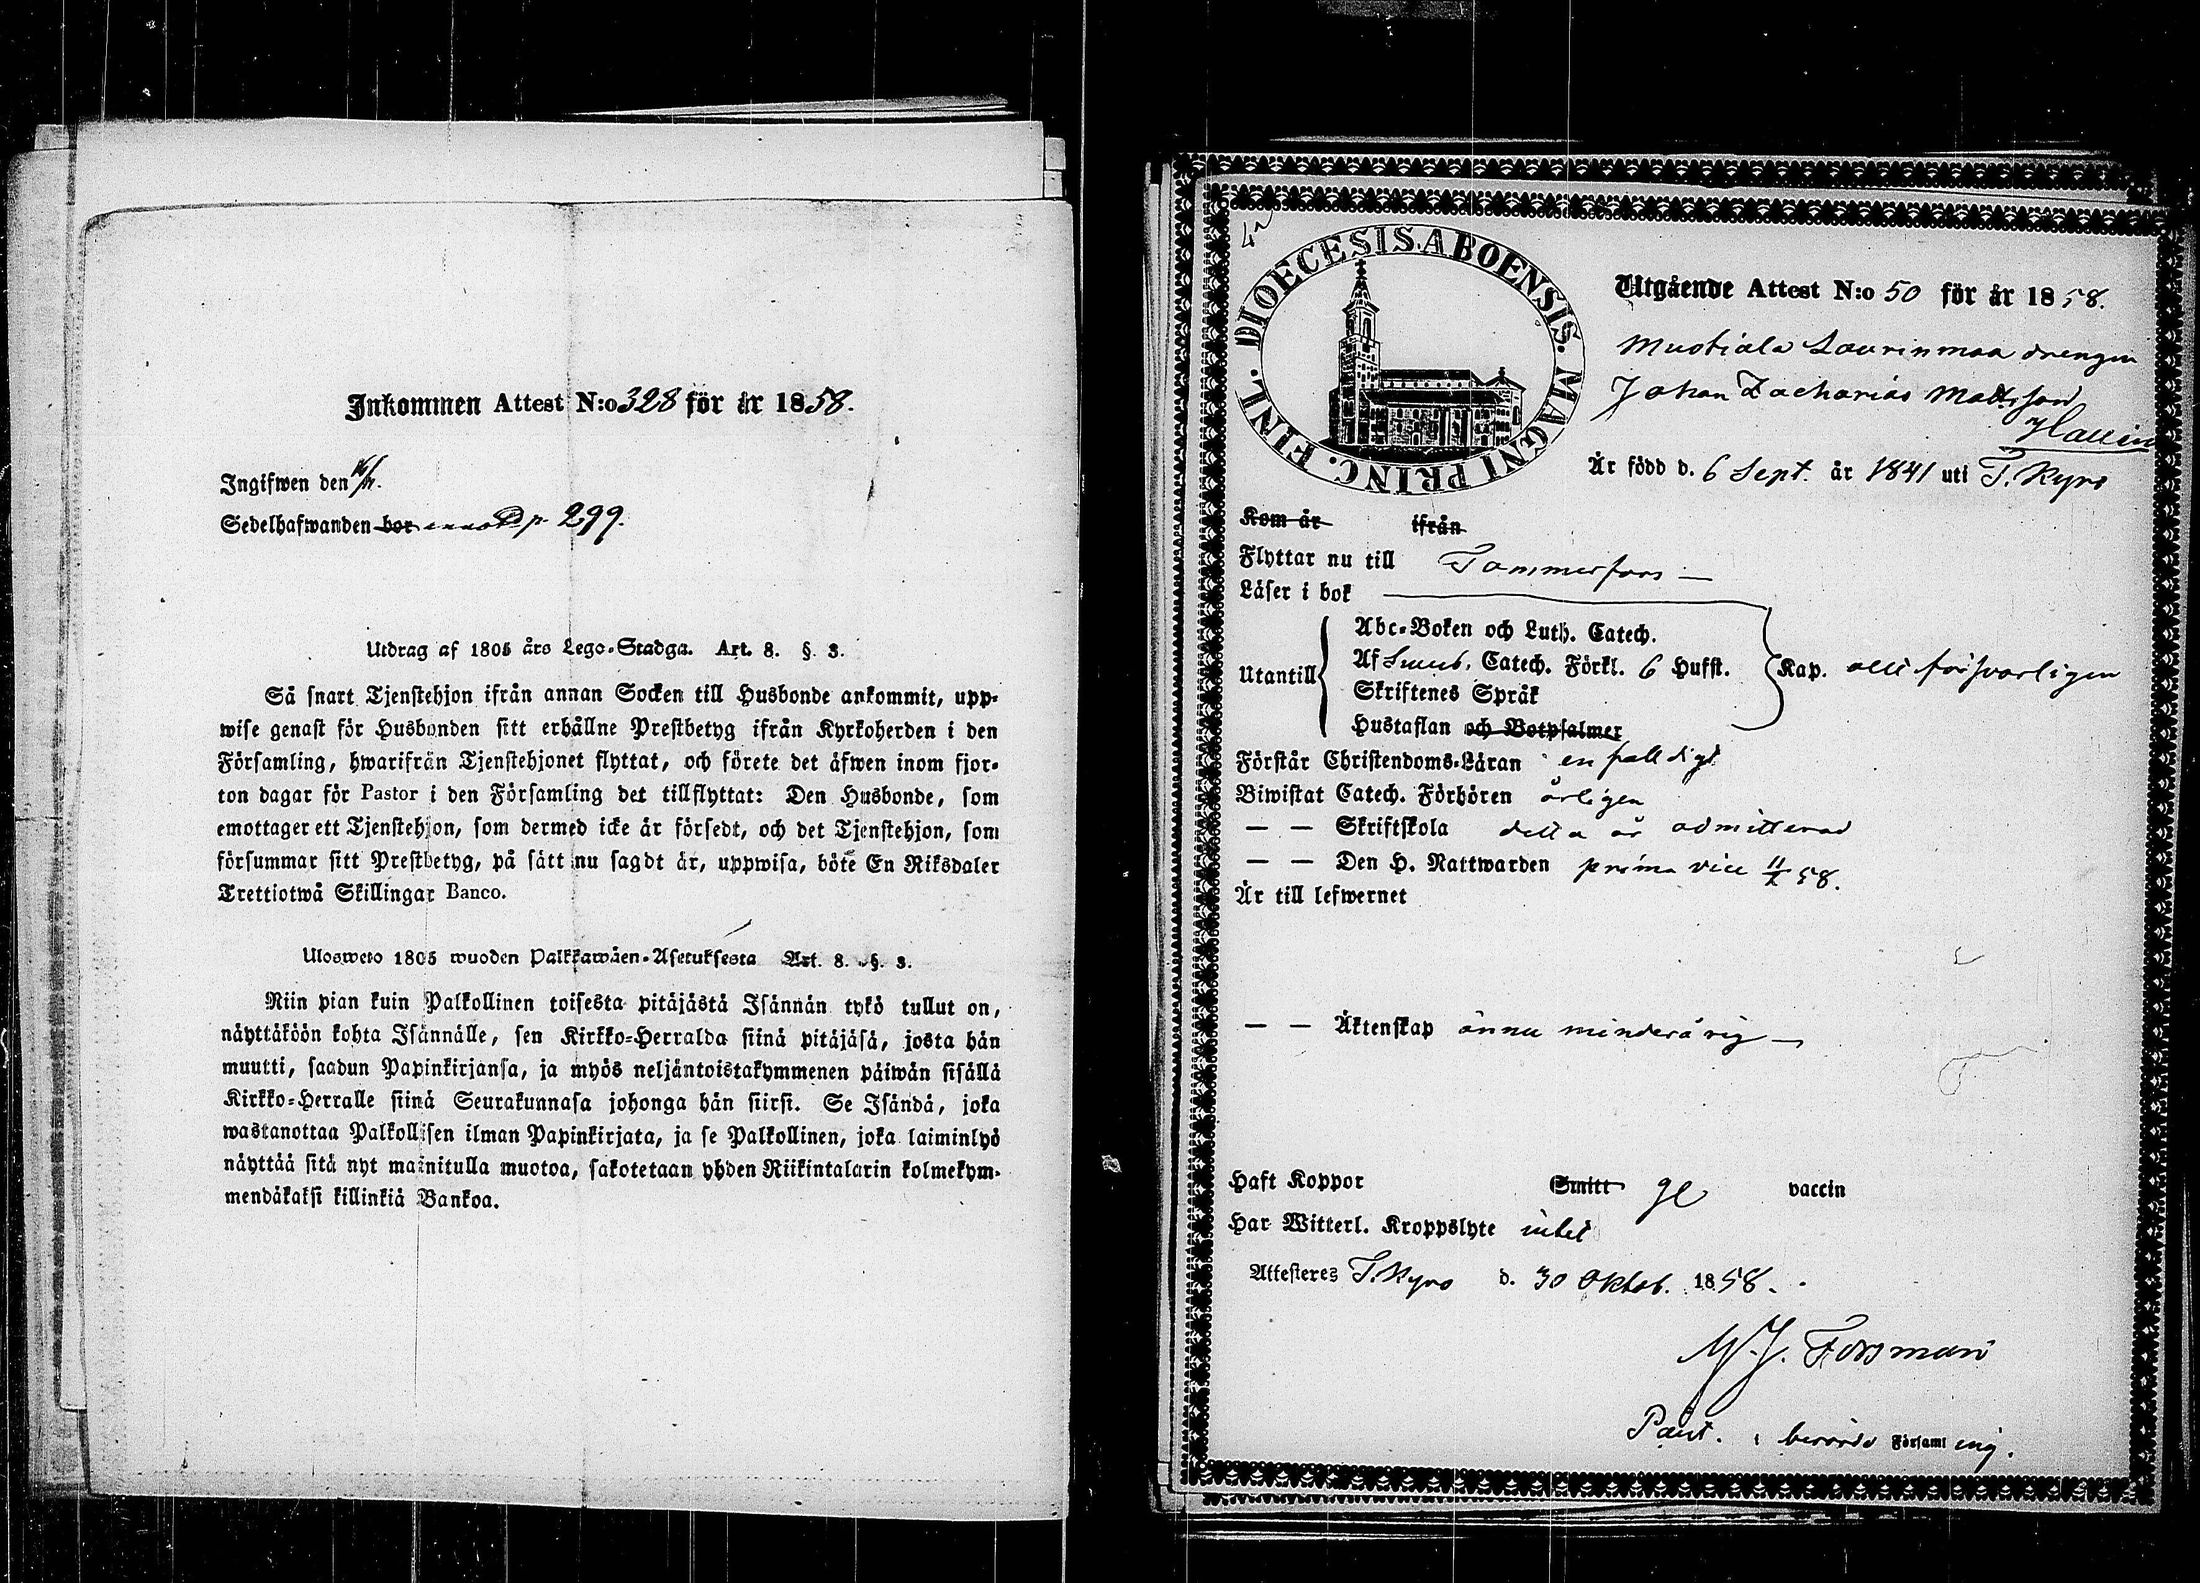 Inkommen Attest N:o 328 för år 1858.
Ingifwen den
Sedelhafwanden bor p. 299.
Utdrag af 1805 års Lego-Stadga. Art. 8. §. 3.
Så snart Tjenstehjon ifrån annan Socken till Husbonde ankommit, upp-
wise genast för Husbonden sitt erhållne Prestbetyg ifrån Kyrkoherden i den
Församling, hwarifrån Tjenstehjonet flyttat, och förete det äfwen inom fjor-
ton dagar för Pastor i den Församling det tillflyttat: Den Husbonde, som
emottager ett Tjenstehjon, som dermed icke är försedt, och det Tjenstehjon, som
försummar sitt Prestbetyg, på sätt nu sagdt är, uppwisa, böte En Riksdaler
Trettiotwå Skillingar Banco.
Ulosweto 1805 wuoden Palkkawäen-Asetuksesta Art. 8. §. 3.
Niin pian kuin Palkollinen toisesta pitäjästä Isännän tykö tullut on,
näyttäköön kohta Isännälle, sen Kirkko-Herralda siinä pitäjäsä, josta hän
muutti, saadun Papinkirjansa, ja myös neljäntoistakymmenen päiwän sisällä
Kirkko-Herralle siinä Seurakunnasa johonga hän siirsi. Se Isändä, joka
wastanottaa Palkollisen ilman Papinkirjata, ja se Palkollinen, joka laiminlyö
näyttää sitä nyt mainitulla muotoa, sakotetaan yhden Riikintalarin kolmekym-
mendäkaksi killinkiä Bankoa.
DIOECESIS ABOENSIS. MAGNI PRINC. FINL.
Utgående Attest N:o 50 för år 1858.
Mustiala Laurinmaa drengen
Johan Zacharias Mattsson
Hallin
Är född d. 6 Sept. år 1841 uti T. Kyro
Kom år ifrån
Flyttar nu till Tammerfors
Läser i bok
Abc-Boken och Luth. Catech.
Utantill Af Svebi. Catech. Förkl. 6 Hufst. Kap. allt försvarligen
Skriftenes Språk
Hustaflan och Botpsalmer
Förstår Christendoms-Läran enfalldigt
Biwistat Catech. Förhören årligen
— — Skriftskola detta år admitterad
— — Den H. Nattwarden prima vice 11/X 58.
Är till lefwernet
— — Äktenskap ännu minderårig
Haft Koppor Smitt vaccin
Har Witterl. Kroppslyte intet
Attesteres T. Kyro d. 30 Oktob. 1858.
M. J. Forsman
Past. i berörde Församl ing.